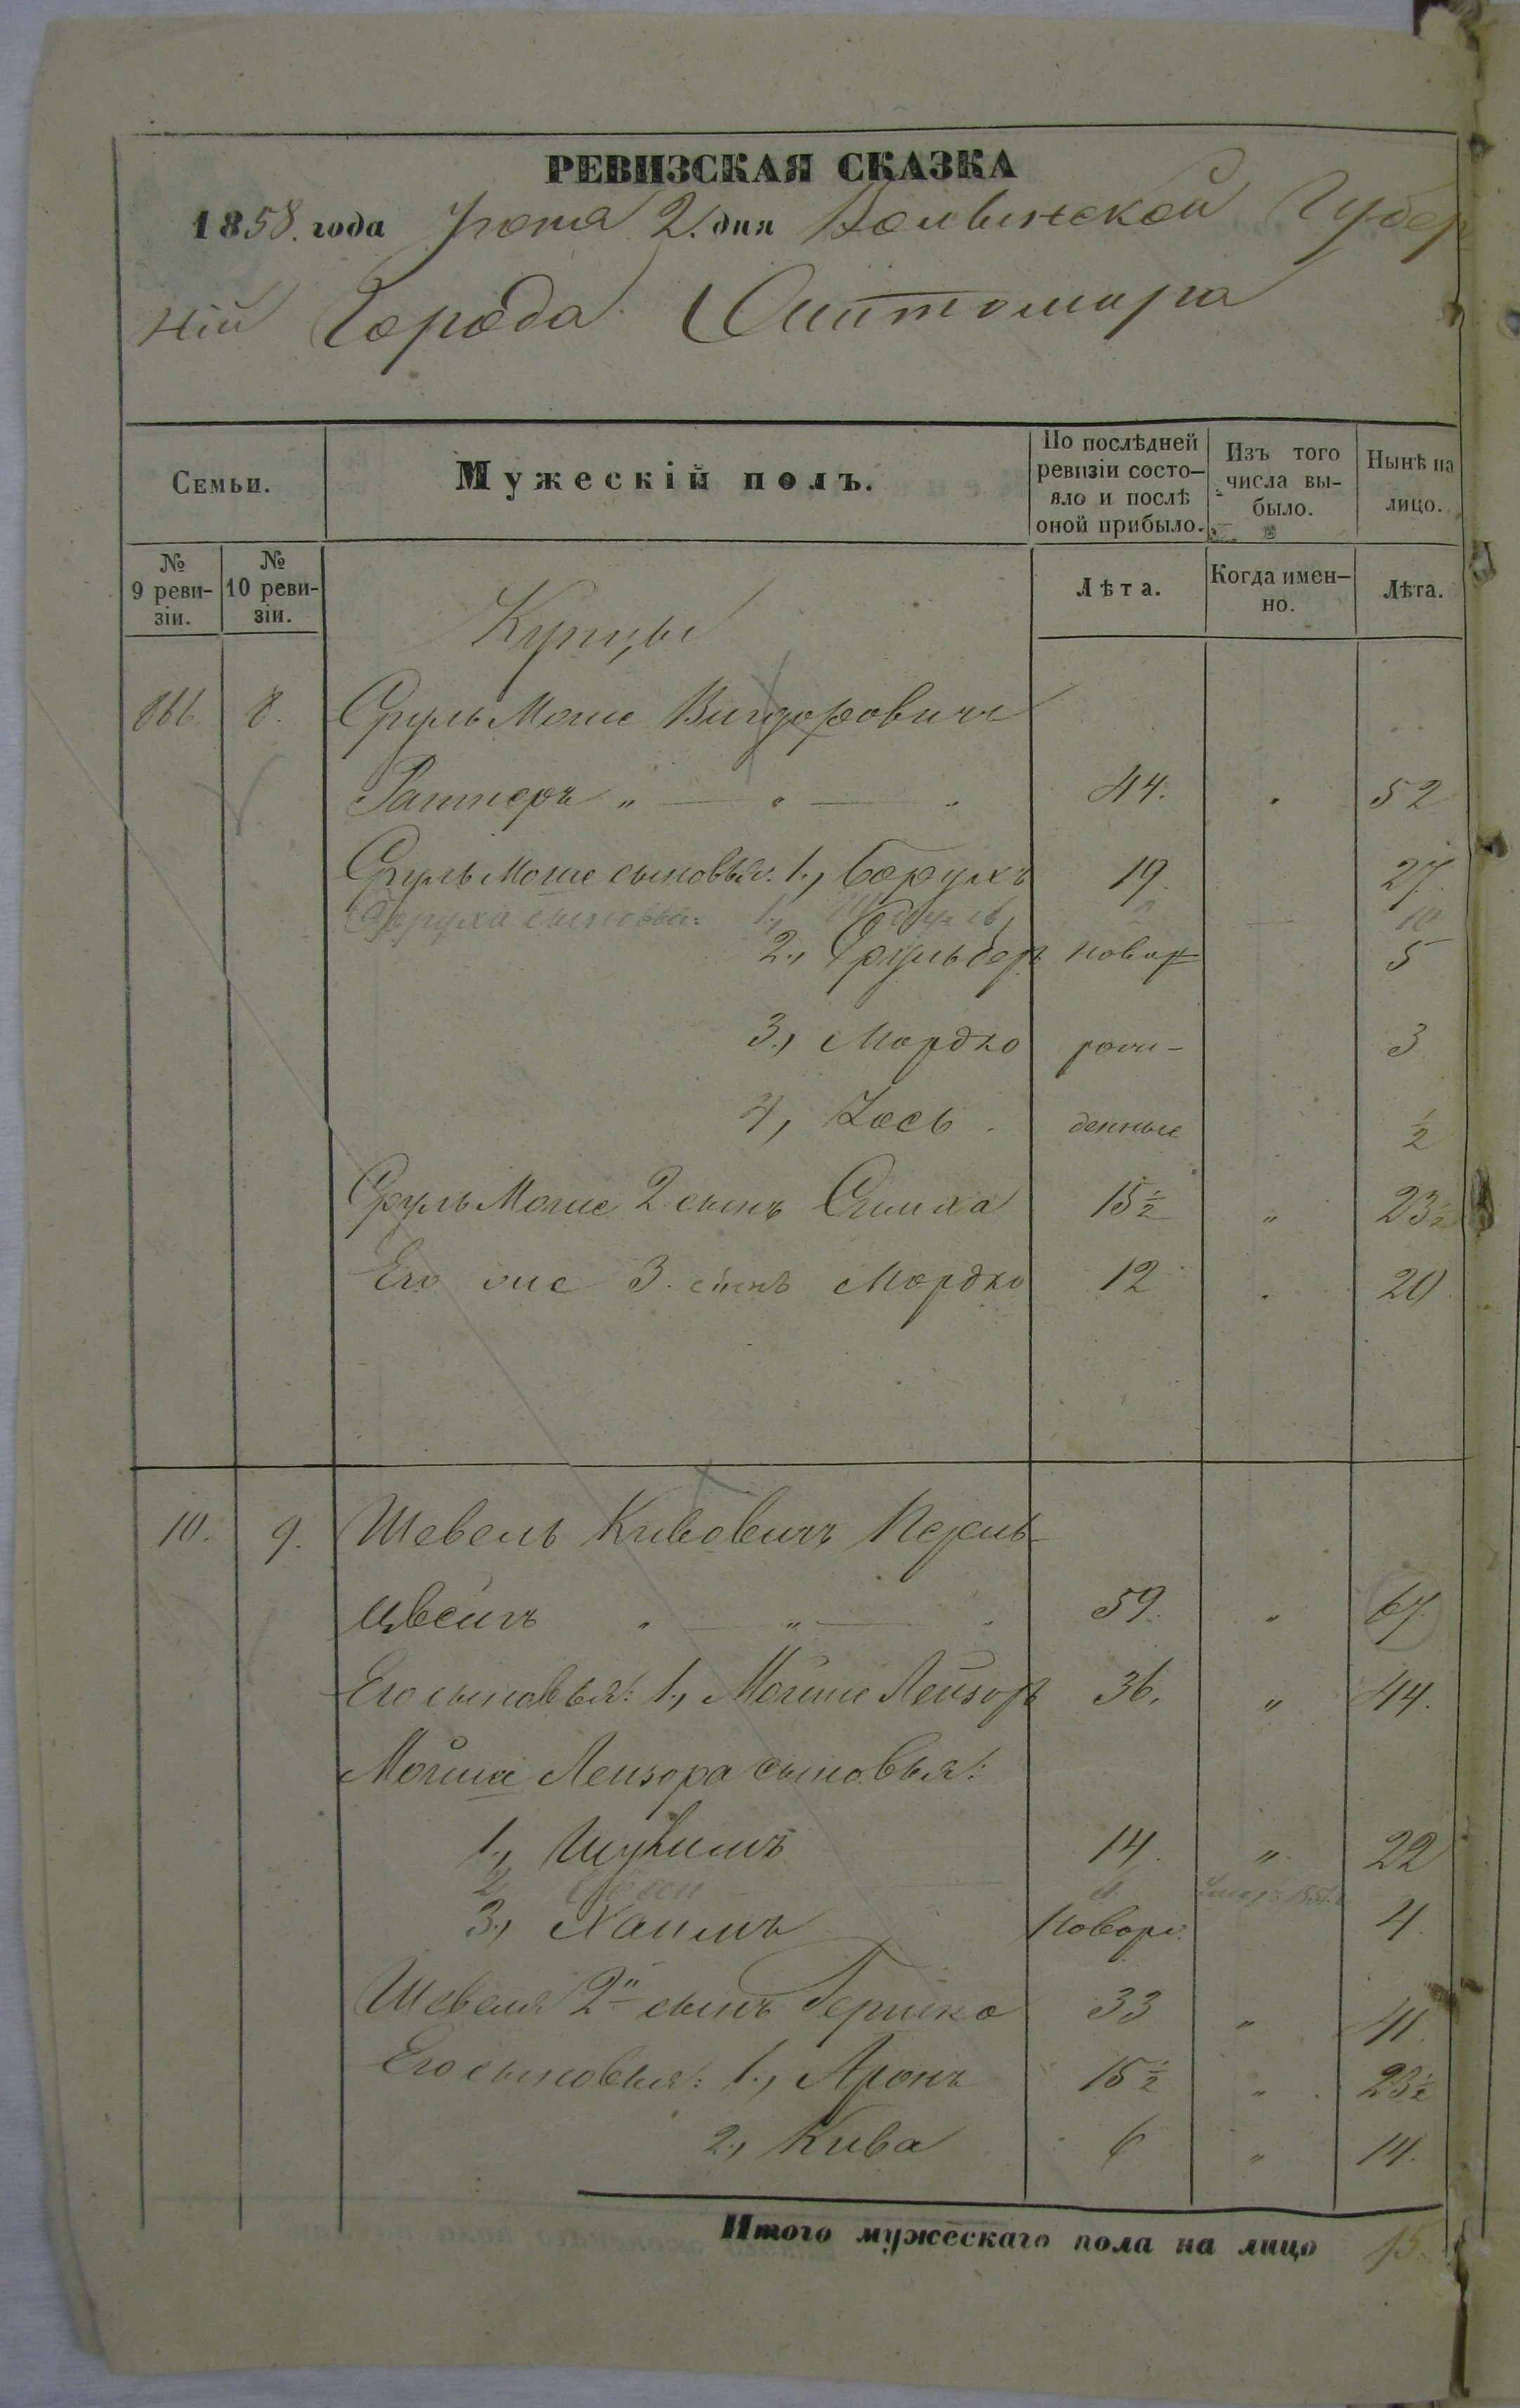 РЕВИЗСКАЯ СКАЗКА
1858. года Іюня 2. дня Волынской Губер
ніи Города Житомира
Семьи.
Мужескій полъ.
По послѣдней ревизіи состо-
яло и послѣ оной прибыло.
Изъ того числа вы-
было.
Нынѣ на лицо.
№ 9 реви-
зіи.
№ 10 реви-
зіи.
Лѣта.
Когда имен-
но.
Лѣта.
Купцы
866. 8. Сруль Моше Вигдоровичъ
Ратнеръ " — " — " 44. 52
Сруль Моше сыновья: 1., Борухъ 19. 27.
Боруха сыновья: 1., 2 10
2., Срульбер новор 5
3., Мордко рож- 3
4, Іось. денные ½
Сруль Моше 2 сынъ Симха 15½ " 23½
Его же 3. сынъ Мордко 12 20
10. 9. Шевель Кивовичъ Перель-
цвейгъ " — " — " 59. " 67.
Его сыновья: 1., Мойше Лейзор 36. " 44.
Мойше Лейзора сыновья:
1., 14. " 22
2,
3., Хаимъ Новоро. 4.
Шевеля 2й сынъ Гершко 33 " 41.
Его сыновья: 1., Аронъ 15½ " 23½
2., Кива 6 " 14.
Итого мужескаго пола на лицо 15.